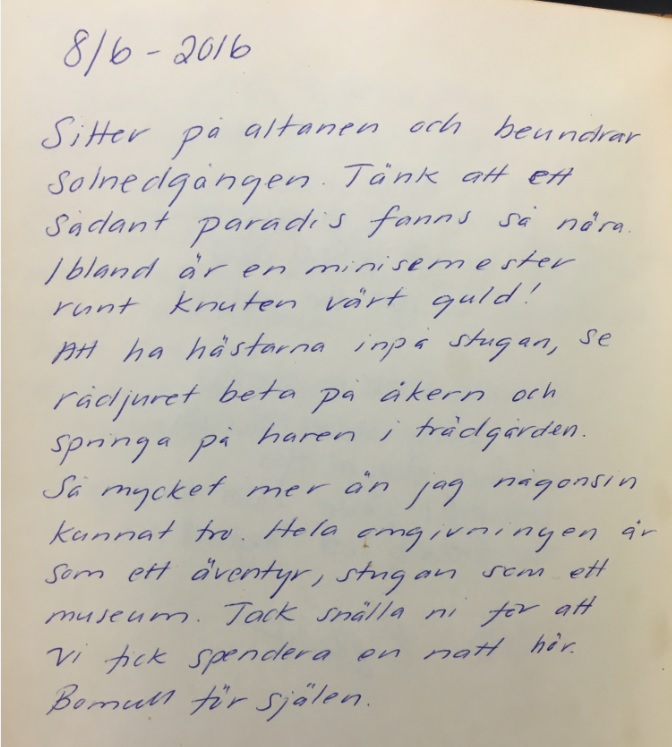 8/6 - 2016
Sitter på altanen och beundrar
solnedgången. Tänk att ett
sådant paradis fanns så nära.
Ibland är en minisemester
runt knuten värt guld!
Att ha hästarna inpå stugan, se
rådjuret beta på åkern och
springa på haren i trädgården.
Så mycket mer än jag någonsin
kunnat tro. Hela omgivningen är
som ett äventyr, stugan som ett
museum. Tack snälla ni för att
vi fick spendera en natt här.
Bomull för själen.